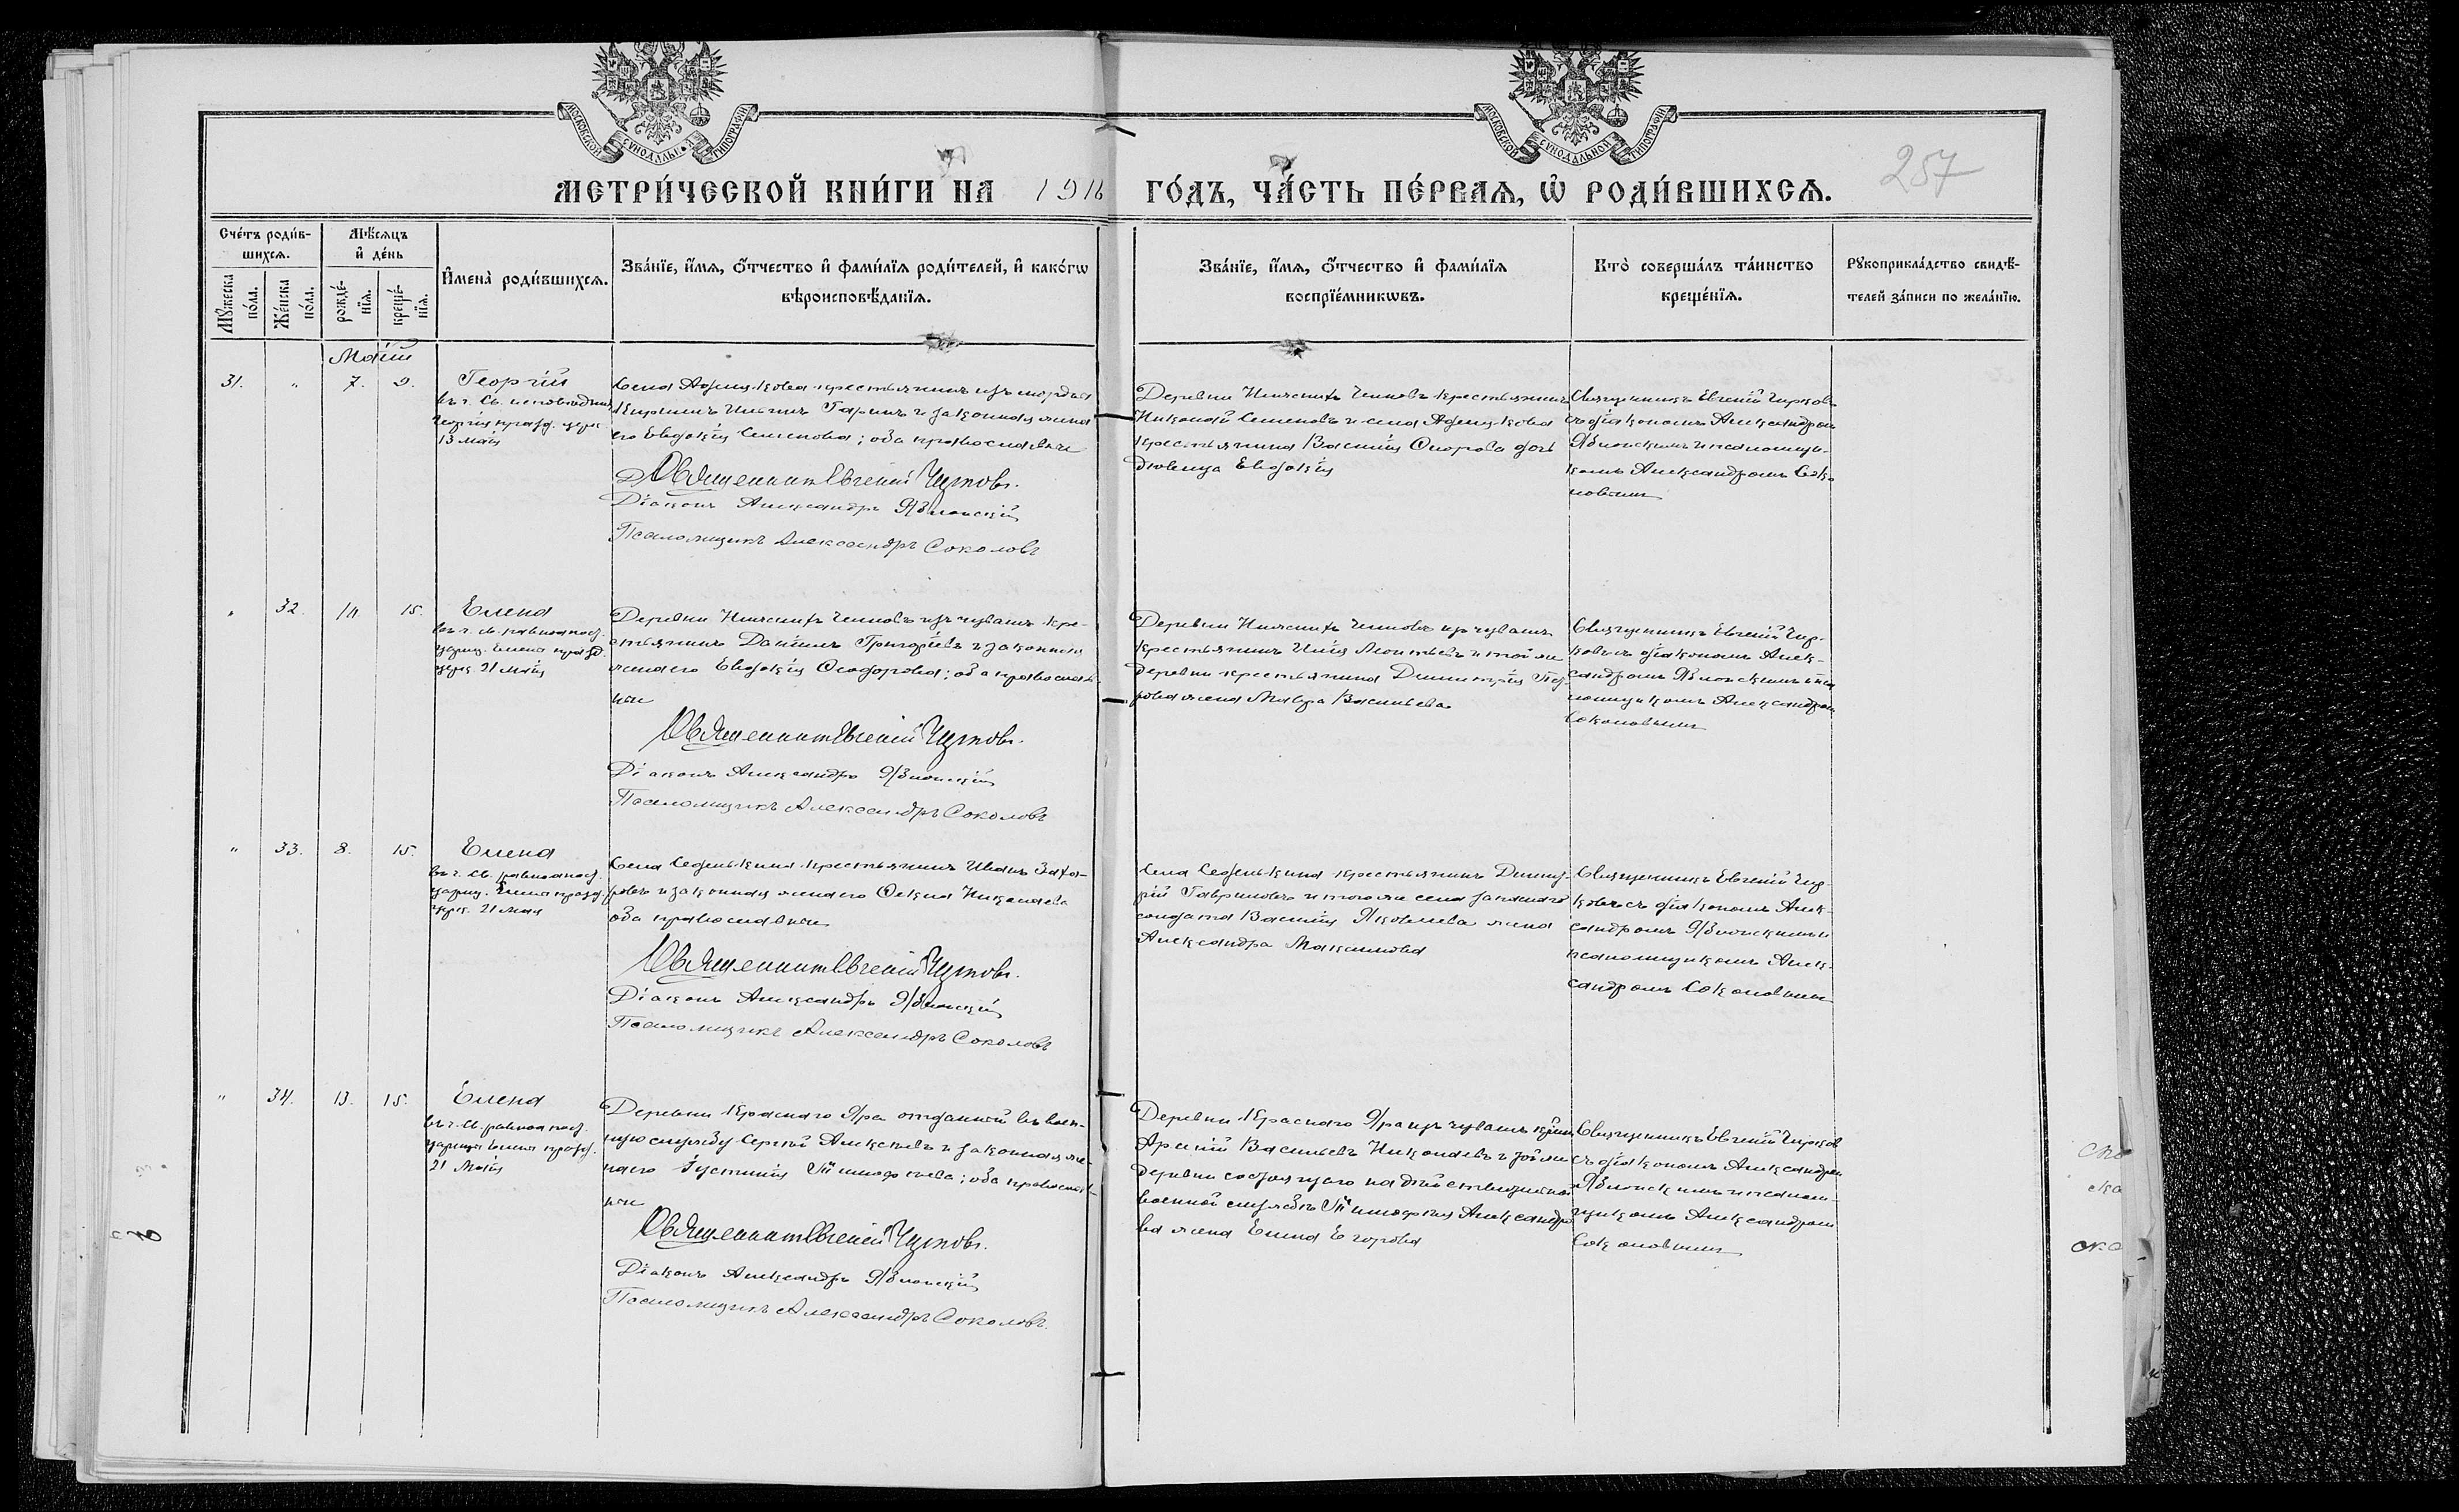 МОСКОВСКОЙ СУНОДАЛЬНОЙ ТИПОГРАФІИ
МОСКОВСКОЙ СУНОДАЛЬНОЙ ТИПОГРАФІИ
257
МЕТРИ́ЧЕСКОЙ КНИ́ГИ НА 1916 ГО́ДЪ, ЧА́СТЬ ПЕ́РВАѦ, Ѡ҆ РОДИ́ВШИХСѦ.
Сче́тъ роди́в-
шихсѧ.
Мꙋ́жеска по́ла.
Же́нска по́ла.
Мѣ́сѧцъ
и҆ де́нь
рожде́-
нїѧ.
креще́-
нїѧ.
И҆мена̀ роди́вшихсѧ.
Зва́нїе, и҆́мѧ, ѻ҆́тчество и҆ фами́лїѧ роди́телей, и҆ како́гѡ
вѣроисповѣ́данїѧ.
Зва́нїе, и҆́мѧ, ѻ҆́тчество и҆ фами́лїѧ
воспрїе́мникѡвъ.
Кто̀ соверша́лъ та́инство
креще́нїѧ.
Рꙋкоприкла́дство свидѣ́-
телей за́писи по жела́нїю.
Май
31. " 7. 9.
Георгій
въ ч. св. исповѣдника
Георгія празд. церк.
13 мая
крестьянинъ изъ мордвы
Гаринъ и законная жена
его Евдокія Семенова; оба православные
Священникъ Евгеній Чирковъ.
Діаконъ Александръ Яблонскій
Псаломщикъ Александръ Соколовъ
Деревни Нижнихъ Чекковъ крестьянинъ
Николай Семеновъ и села
крестьянина Василія дочь
дѣвица Евдокія
Священникъ Евгеній Чирковъ
съ діакономъ Александромъ
Яблонскимъ и псаломщи-
комъ Александромъ Соко-
ловымъ
" 32. 15.
Елена
въ ч. св. равноапост.
цариц. Елены празд.
церк. 21 мая
Деревни Нижнихъ изъ чувашъ кре-
стьянинъ Даніилъ Григорьевъ и законная
жена его Евдокія Ѳеодорова; оба православ-
ные
Священникъ Евгеній Чирковъ.
Діаконъ Александръ Яблонскій
Псаломщикъ Александръ Соколовъ
Деревни Нижнихъ изъ чувашъ
крестьянинъ Илія и той же
деревни крестьянина Димитрія Пет-
рова жена Мавра Васильева
Священникъ Евгеній Чир-
ковъ съ діакономъ Алек-
сандромъ Яблонскимъ и пса-
ломщикомъ Александромъ
Соколовымъ
" 33. 8. 15.
Елена
въ ч. св. равноапост.
цариц. Елены празд.
церк. 21 мая
Села Седенькина крестьянинъ Иванъ Заха-
ровъ и законная жена его Ѳекла Николаева
оба православные
Священникъ Евгеній Чирковъ.
Діаконъ Александръ Яблонскій
Псаломщикъ Александръ Соколовъ
Села Седенькина крестьянинъ Димит-
рій Гавриловъ и того же села запаснаго
солдата Василія Яковлева жена
Александра Максимова
Священникъ Евгеній Чир-
ковъ съ діакономъ Алек-
сандромъ Яблонскимъ и
псаломщикомъ Алек-
сандромъ Соколовымъ
" 34. 13. 15.
Елена
въ ч. св. равноапост.
царицы Елены празд.
21 Мая
Деревни Краснаго Яра отданный въ воен-
ную службу Сергѣй Алексѣевъ и законная же-
на его Іустинія Тимоѳеева; оба православ-
ные
Священникъ Евгеній Чирковъ.
Діаконъ Александръ Яблонскій
Псаломщикъ Александръ Соколовъ.
Деревни Краснаго Яра изъ чувашъ
Арсеній Васильевъ Николаевъ и той же
деревни состоящаго на дѣйствительной
военной службѣ Тимоѳея Александро-
ва жена Елена Егорова
Священникъ Евгеній Чирковъ
съ діакономъ Александромъ
Яблонскимъ и псалом-
щикомъ Александромъ
Соколовымъ